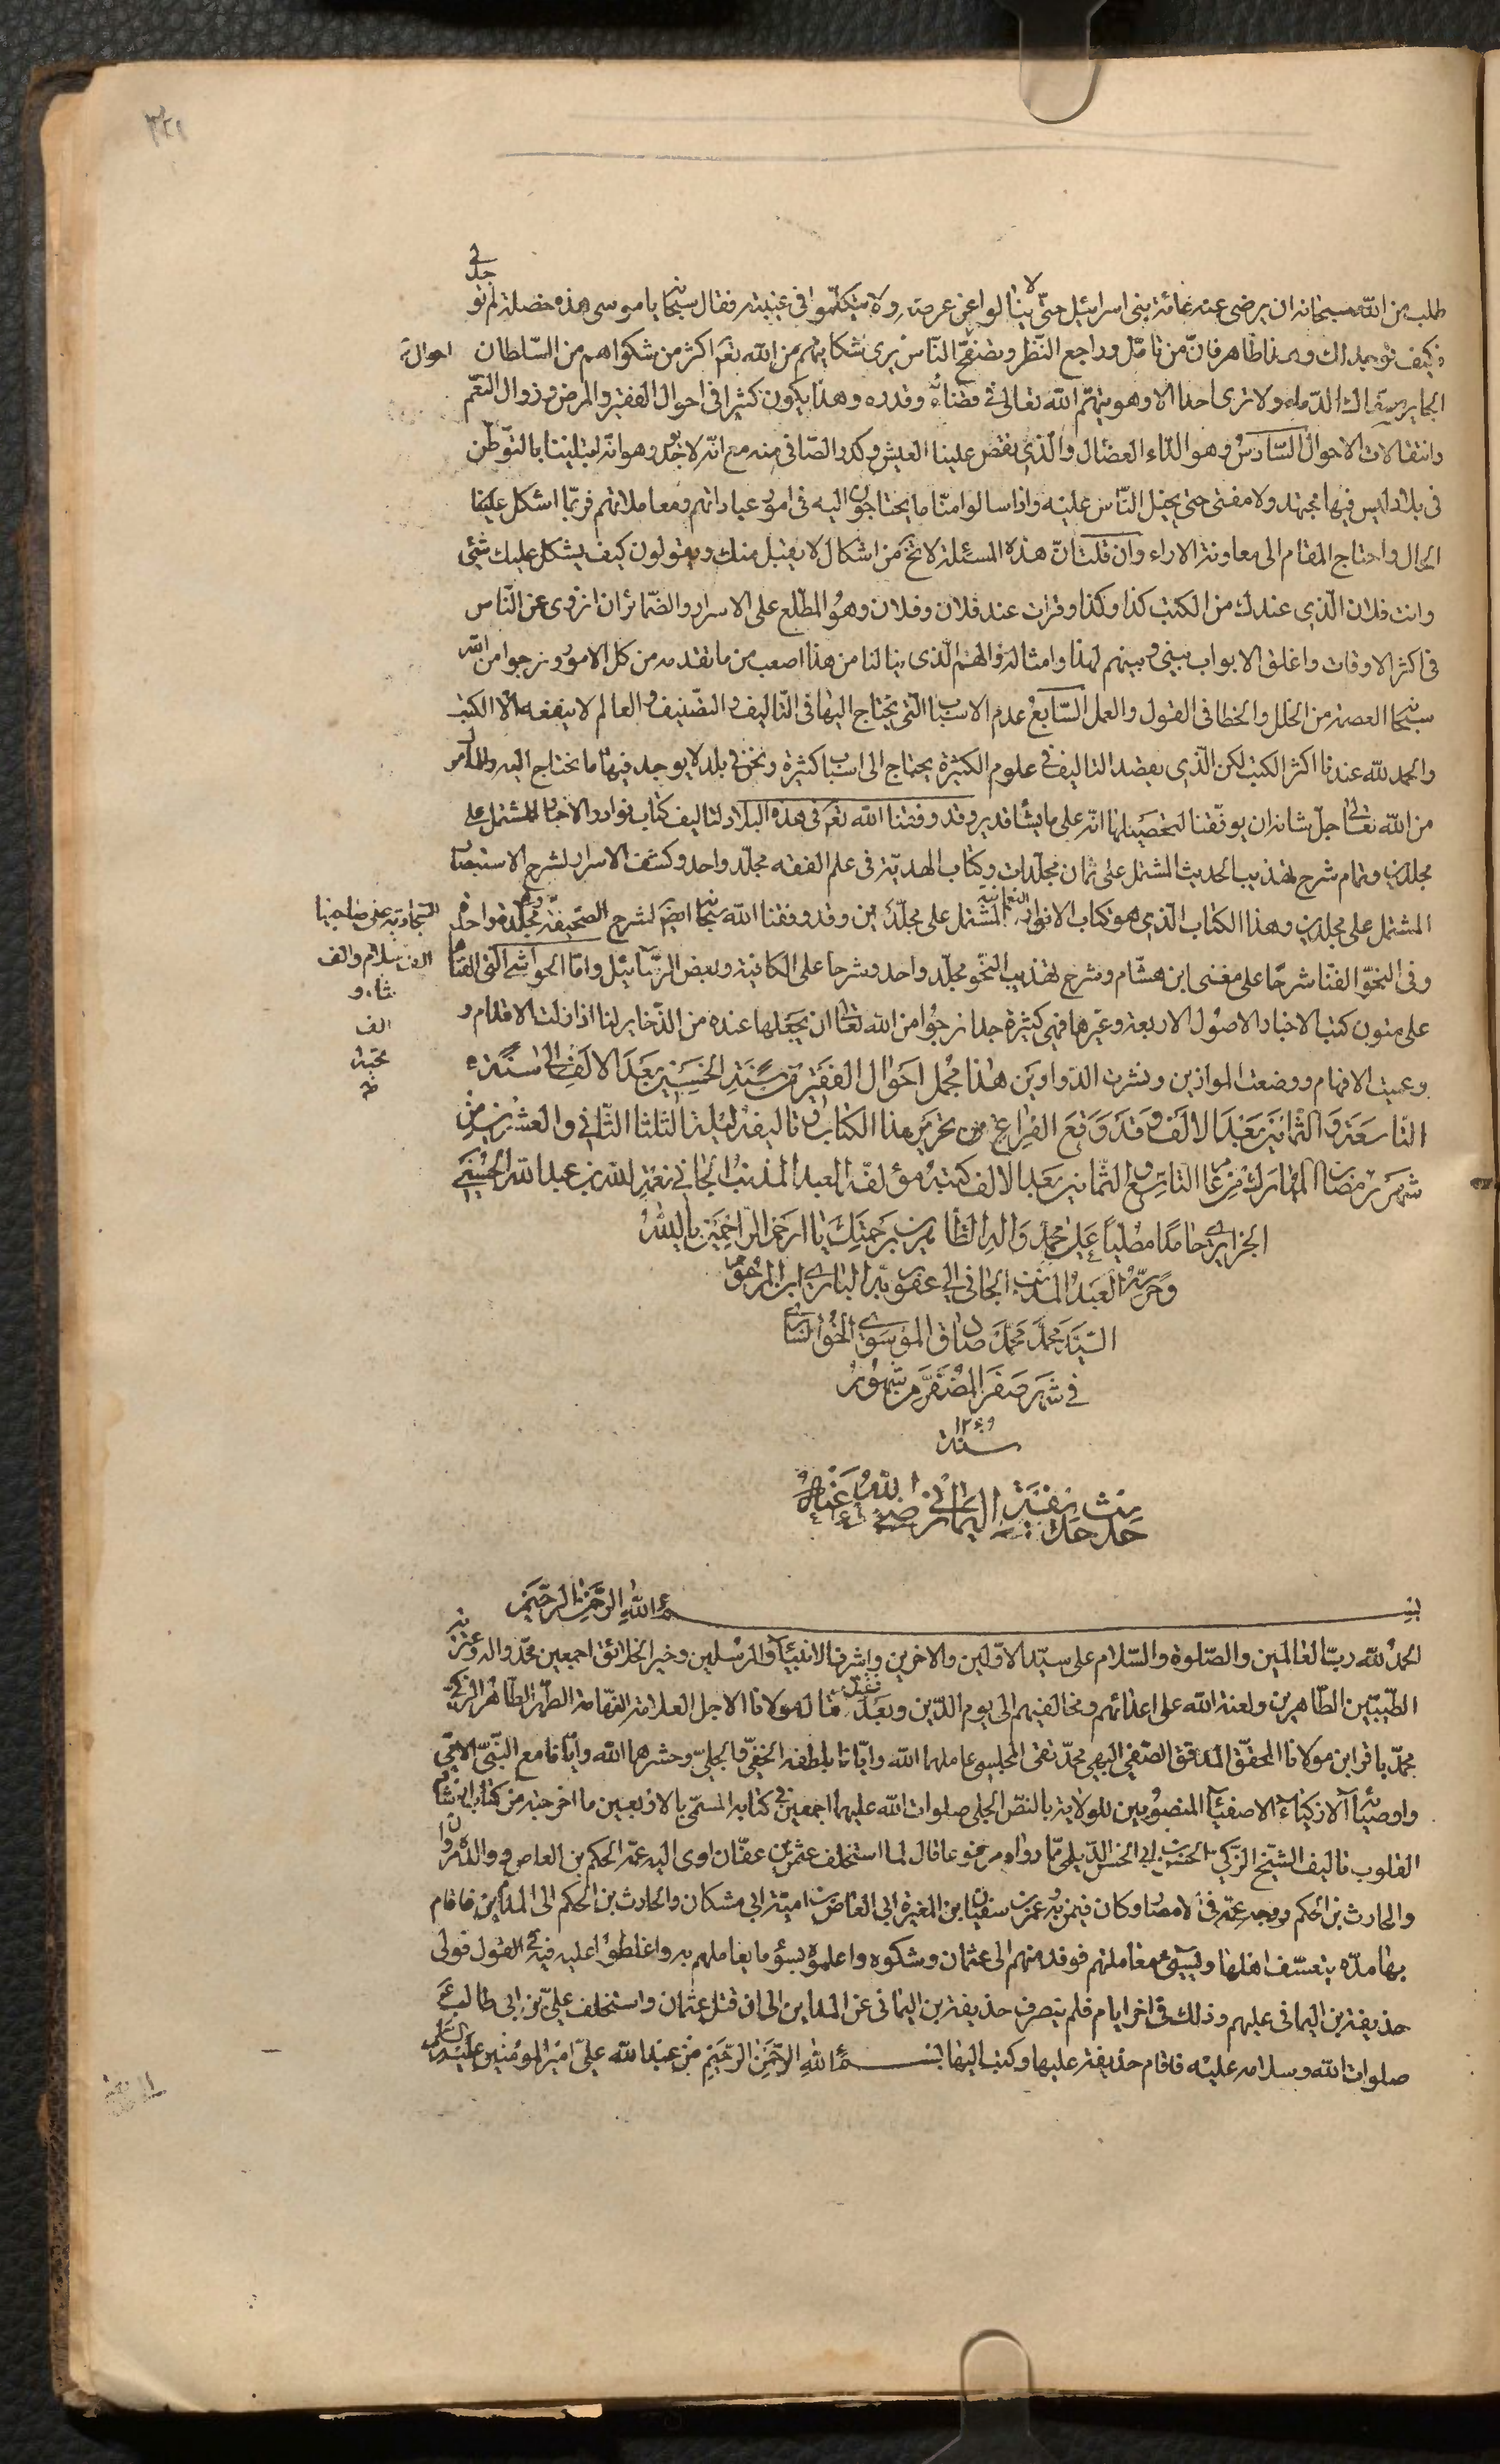 طلب من الله سبحانه ان يرضى عنه عامة بنى اسرائيل حتى لا ينالوا عن عرضه ولا يتكلموا فى غيبته فقال سبحانه يا موسى هذه خصلة لم توجد لى
فكيف توجد لك وهذا ظاهر فان من تامل وراجع النظر وتصفح الناس يرى شكايتهم من الله تعم اكثر من شكواهم من السلطان
الجاير سفاك الدماء ولا ترى احدا الا وهو يتهم الله تعالى فى قضائه وقدره وهذا يكون كثيرا فى احوال الفقر والمرض وزوال النعم
وانتقالات الاحوال السادس وهو الداء العضال والذى نغص علينا العيش وكدر الصافى منه مع انه لا بد وهو انه ابتلينا بالتوطن
فى بلاد ليس فيها مجتهد ولا مفتى حتى يحيل الناس عليه واذا سالوا منا ما يحتاجون اليه فى امور عباداتهم ومعاملاتهم فربما اشكل علينا
الحال واحتاج المقام الى معاونة الاراء وان قلت ان هذه المسئلة لا تخ من اشكال لا يقبل منك ويقولون كيف يشكل عليك شئى
وانت فلان الذى عندك من الكتب كذا وكذا وقرات عند فلان وفلان وهو المطلع على الاسرار والضمائر ان انزوى عن الناس
فى اكثر الاوقات واغلق الابواب بينى وبينهم لهذا وامثاله والهم الذى ينالنا من هذا اصعب من ما تقدمه من كل الامور ونرجوا من الله
سبحانه العصمة من الخلل والخطا فى القول والعمل السابع عدم الاسباب التى يحتاج اليها فى التاليف والتصنيف والعالم لا ينفعه الا الكتب
والحمد لله عندنا اكثر الكتب لكن الذى يقصد التاليف فى علوم الكثيرة يحتاج الى اسباب كثيرة ونحن فى بلد لا يوجد فيها ما نحتاج اليه والمامول
من الله تعالى جل شانه ان يوفقنا لتحصيلها انه على ما يشا قدير وقد وفقنا الله تعم فى هذه البلاد لتاليف كتاب نوادر الاخبار المشتمل على
مجلدين وتمام شرح تهذيب الحديث المشتمل على ثمان مجلدات وكتاب الهدية فى علم الفقه مجلد واحد وكشف الاسرار لشرح الاستبصار
المشتمل على مجلدين وهذا الكتاب الذى هو كتاب الانوار النعمانية المشتمل على مجلدين وقد وفقنا الله سبحانه ايضا لشرح الصحيفة مجلدة واحدة
السجادية على صاحبها
الف سلام والف
ثناء و
الف
تحية
وفى النحو الفنا شرحا على مغنى ابن هشام وشرح تهذيب النحو مجلد واحد وشرحا على الكافية وبعض الرسائيل واما الحواشى التى الفناها
على متون كتب الاخبار الاصول الاربعة وغيرها فهى كثيرة جدا نرجوا من الله تعالى ان يجعلها عنده من الذخاير لنا اذا زلت الاقدام و
وعميت الافهام ووضعت الموازين ونشرت الدواوين هذا مجمل احوال الفقير من سنة الخمسين بعد الالف الى سنة
التاسعة والثمانين بعد الالف وقد وقع الفراغ من تحرير هذا الكتاب وتاليفه ليلة الثلثا الثانى والعشرين من
شهر رمضان المبارك من عام التاسع والثمانين بعد الالف كتبه مؤلفه العبد المذنب الجانى نعمة الله بن عبد الله الحسينى
الجزايرى حامدا مصليا على محمد واله الطاهرين برحمتك يا ارحم الراحمين يا الله
وحرره العبد المذنب الجانى الى عفو ربه البارى ابن المرحوم
السيد محمد محمد صادق الموسوى الخوانسارى
فى شهر صفر المضفر من شهور
سنة ١٢٤٩
حديث حذيفة اليمانى رضى الله عنه
بسم الله الرحمن الرحيم
الحمد لله رب العالمين والصلوة والسلام على سيد الاولين والاخرين واشرف الانبياء والمرسلين وخير الخلائق اجمعين محمد واله وعترته
الطيبين الطاهرين ولعنة الله على اعدائهم ومخالفيهم الى يوم الدين وبعد فقد قال مولانا الاجل العلامة الفهامة الطهر الطاهر الزكى
محمد باقر ابن مولانا المحقق المدقق الصفى البهى محمد تقى المجلسى عاملهما الله وايانا بلطفه الخفى والجلى وحشرهما الله وايانا مع النبى الامى
واوصيائه الازكياء الاصفياء المنصوبين للولاية بالنص الجلى صلوات الله عليهم اجمعين فى كتابه المسمى بالاربعين ما اخرجته من كتاب ارشاد
القلوب تاليف الشيخ الزكى الحسن بن ابى الحسن الديلمى مما رواه مرفوعا قال لما استخلف عثمن بن عفان اوى اليه عمه الحكم بن العاص وولده مروان
والحارث بن الحكم ووجه عماله فى الامصار وكان فيمن وجه عمر بن سفيان ابن المغيرة ابى العاص بن امية الى مشكان والحارث بن الحكم الى المداين فاقام
بها مدة يتعسف اهلها ويسيئ معاملتهم فوفد منهم الى عثمان وشكوه واعلموه بسوء ما يعاملهم به واغلظوا عليه فيه فى القول فولى
حذيفة بن اليمانى عليهم وذلك فى اخر ايام فلم ينصرف حذيفة بن اليمانى عن المداين الى ان قتل عثمان واستخلف على بن ابى طالب ع
صلوات الله وسلامه عليه فاقام حذيفة عليها وكتب اليها بسم الله الرحمن الرحيم من عبد الله على امير المؤمنين عليه السلام